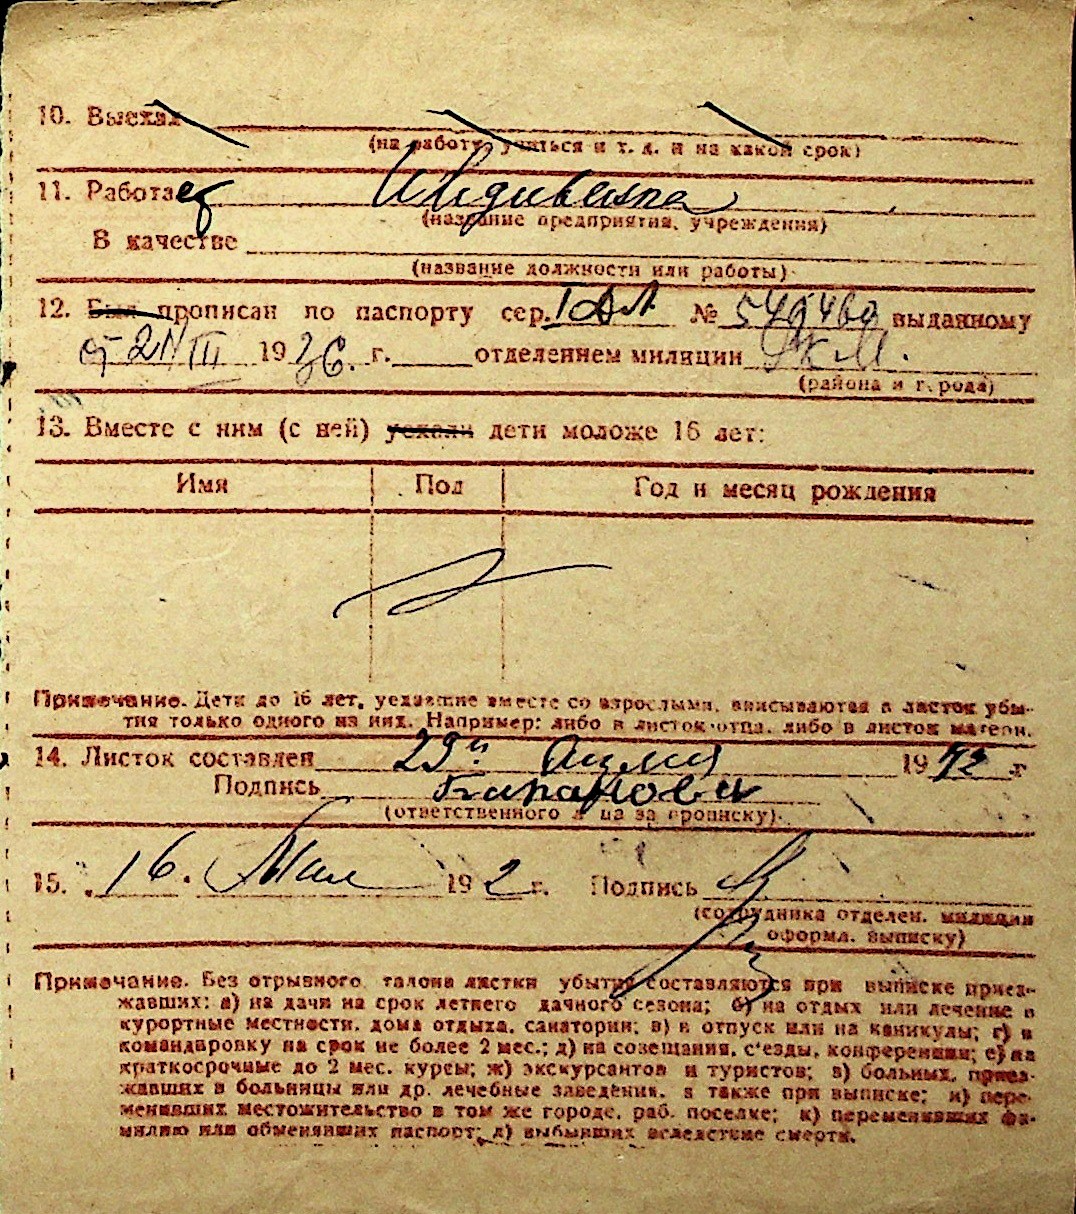 10. Выехал
(на работу, учиться и т. д. и на какой срок)
11. Работает Иждивенка
(название предприятия, учреждения)
В качестве
(название должности или работы)
12. Был прописан по паспорту сер. № 549460 выданному
от III 1936. г. отделением милиции Р.К.М.
(района и города)
13. Вместе с ним (с ней) уехали дети моложе 16 лет:
Имя Пол Год и месяц рождения
Примечание. Дети до 16 лет, уехавшие вместе со взрослыми, вписываются в листок убы-
тия только одного из них. Например: либо в листок отца, либо в листок матери.
14. Листок составлен 29го 1942 г
Подпись Баранова
(ответственного лица за прописку)
15. 16. Мая 192 г. Подпись
(сотрудника отделен. милиции
оформл. выписку)
Примечание. Без отрывного талона листки убытия составляются при выписке приез-
жавших: а) на дачи на срок летнего дачного сезона; б) на отдых или лечение в
курортные местности, дома отдыха, санатории; в) в отпуск или на каникулы; г) в
командировку на срок не более 2 мес.; д) на совещания, с'езды, конференции; е) на
краткосрочные до 2 мес. курсы; ж) экскурсантов и туристов; з) больных, приез-
жавших в больницы или др. лечебные заведения, а также при выписке; и) пере-
менивших местожительство в том же городе, раб. поселке; к) переменивших фа-
милию или обменявших паспорт; л) выбывших вследствие смерти.